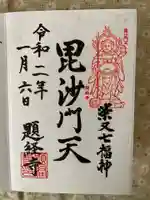 柴又七福神
毘沙門天
令和二年
一月六日
題経寺